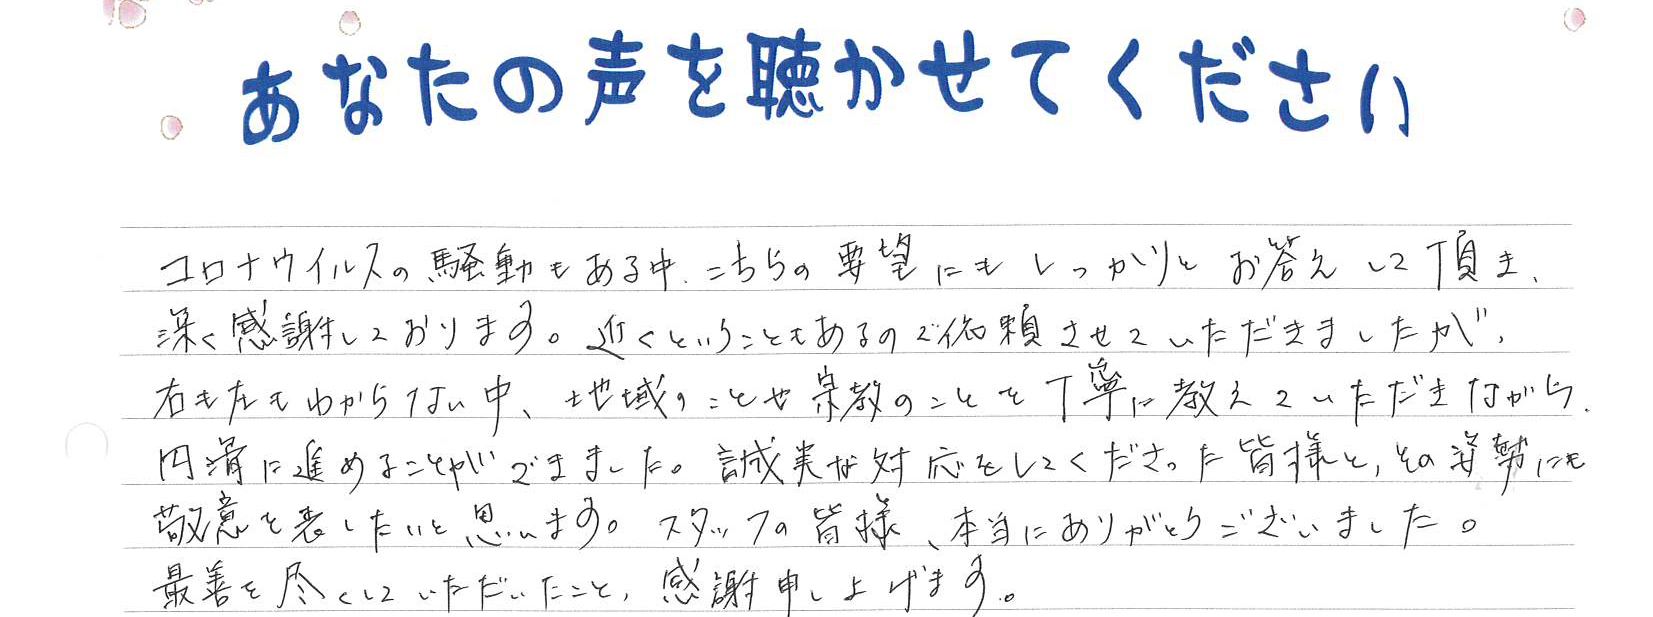 あなたの声を聴かせてください
コロナウイルスの騒動もある中、こちらの要望にもしっかりとお答えして頂き、
深く感謝しております。近くということもあるので依頼させていただきましたが、
右も左もわからない中、地域のことや宗教のことを丁寧に教えていただきながら、
円滑に進めることができました。誠実な対応をしてくださった皆様と、その姿勢にも
敬意を表したいと思います。スタッフの皆様、本当にありがとうございました。
最善を尽くしていただいたこと、感謝申し上げます。